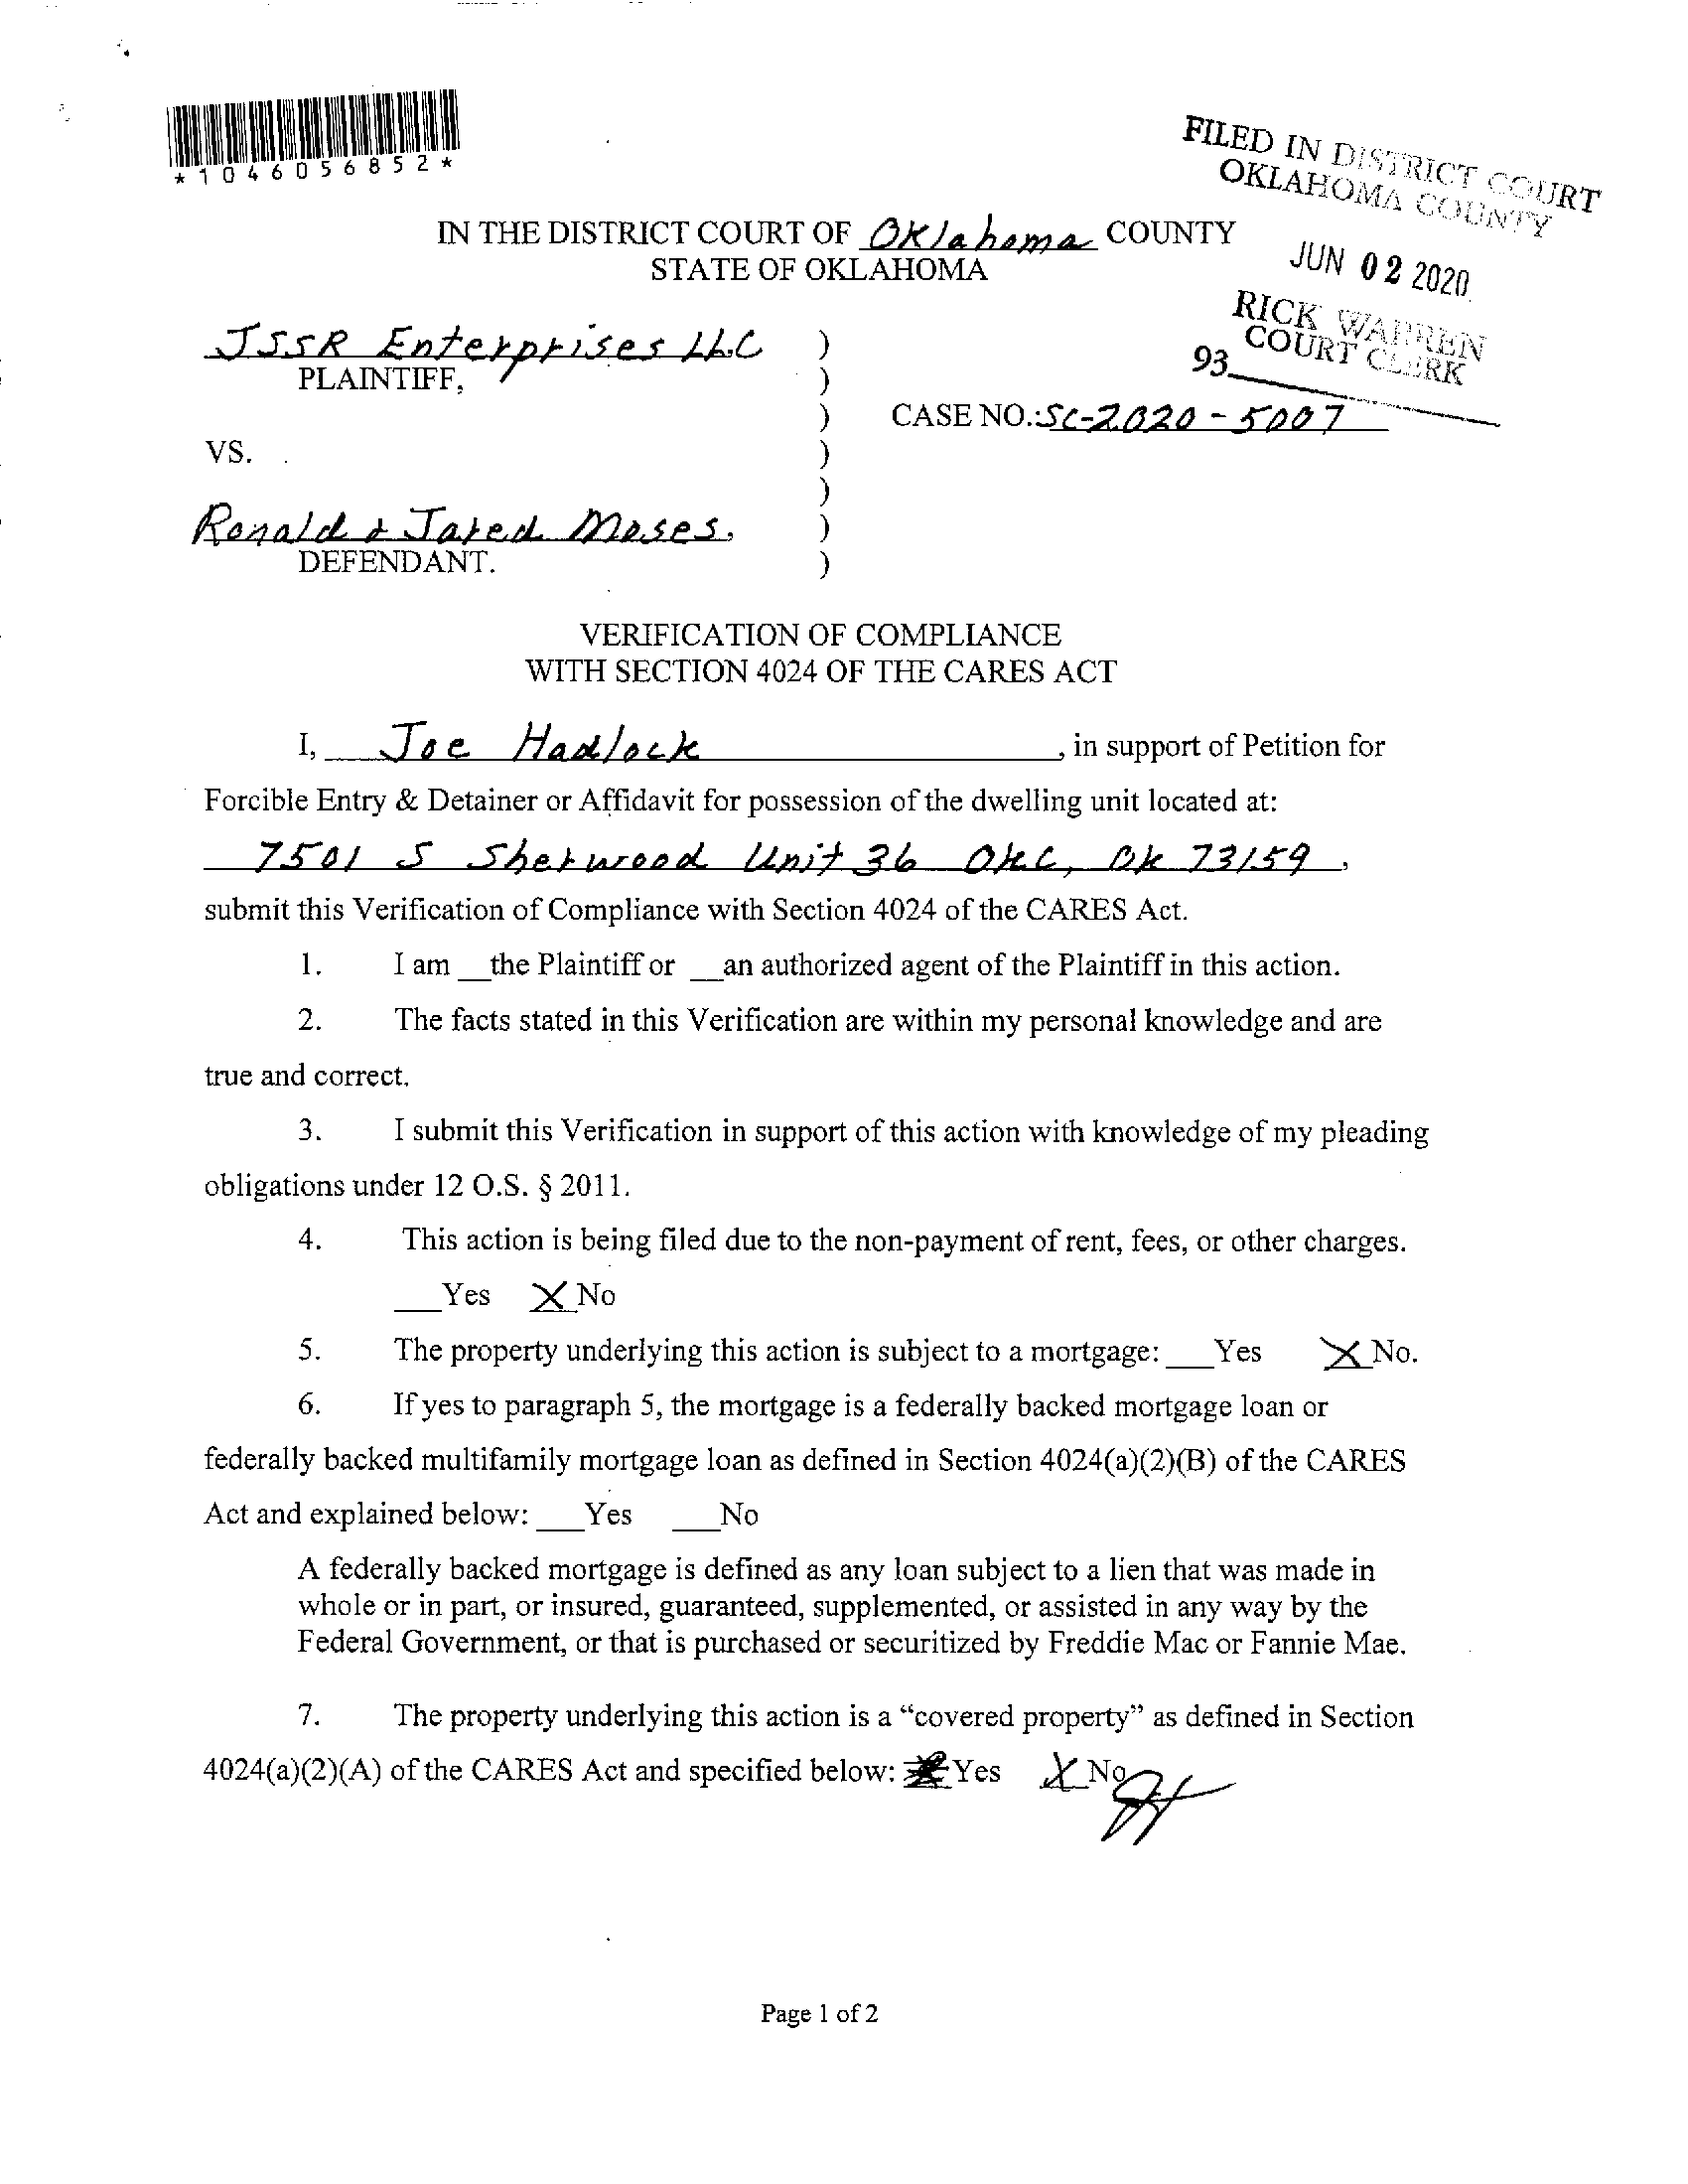 *1046056852*
FILED IN DISTRICT COURT
OKLAHOMA COUNTY
JUN 02 2020
RICK WARREN
COURT CLERK
93
IN THE DISTRICT COURT OF Oklahoma COUNTY
STATE OF OKLAHOMA
JSSR Enterprises LLC )
PLAINTIFF, )
) CASE NO.:SC-2020-5007
VS. )
)
Ronald & Jared Moses. )
DEFENDANT. )
VERIFICATION OF COMPLIANCE
WITH SECTION 4024 OF THE CARES ACT
I, Joe Hadlock, in support of Petition for
Forcible Entry & Detainer or Affidavit for possession of the dwelling unit located at:
7501 S Sherwood Unit 36 OKC, OK 73159,
submit this Verification of Compliance with Section 4024 of the CARES Act.
1. I am __the Plaintiff or __an authorized agent of the Plaintiff in this action.
2. The facts stated in this Verification are within my personal knowledge and are
true and correct.
3. I submit this Verification in support of this action with knowledge of my pleading
obligations under 12 O.S. § 2011.
4. This action is being filed due to the non-payment of rent, fees, or other charges.
___Yes X No
5. The property underlying this action is subject to a mortgage: ___Yes X No.
6. If yes to paragraph 5, the mortgage is a federally backed mortgage loan or
federally backed multifamily mortgage loan as defined in Section 4024(a)(2)(B) of the CARES
Act and explained below: ___Yes ___No
A federally backed mortgage is defined as any loan subject to a lien that was made in
whole or in part, or insured, guaranteed, supplemented, or assisted in any way by the
Federal Government, or that is purchased or securitized by Freddie Mac or Fannie Mae.
7. The property underlying this action is a “covered property” as defined in Section
4024(a)(2)(A) of the CARES Act and specified below: Yes X No
JH
Page 1 of 2